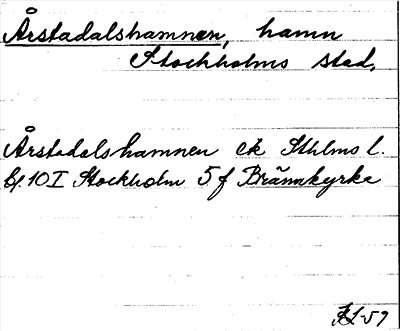 Årstadalshamnen, hamn
Stockholms stad.
Årstadalshamnen ek Sthlms l.
bl. 10 I Stockholm 5 f Brännkyrka